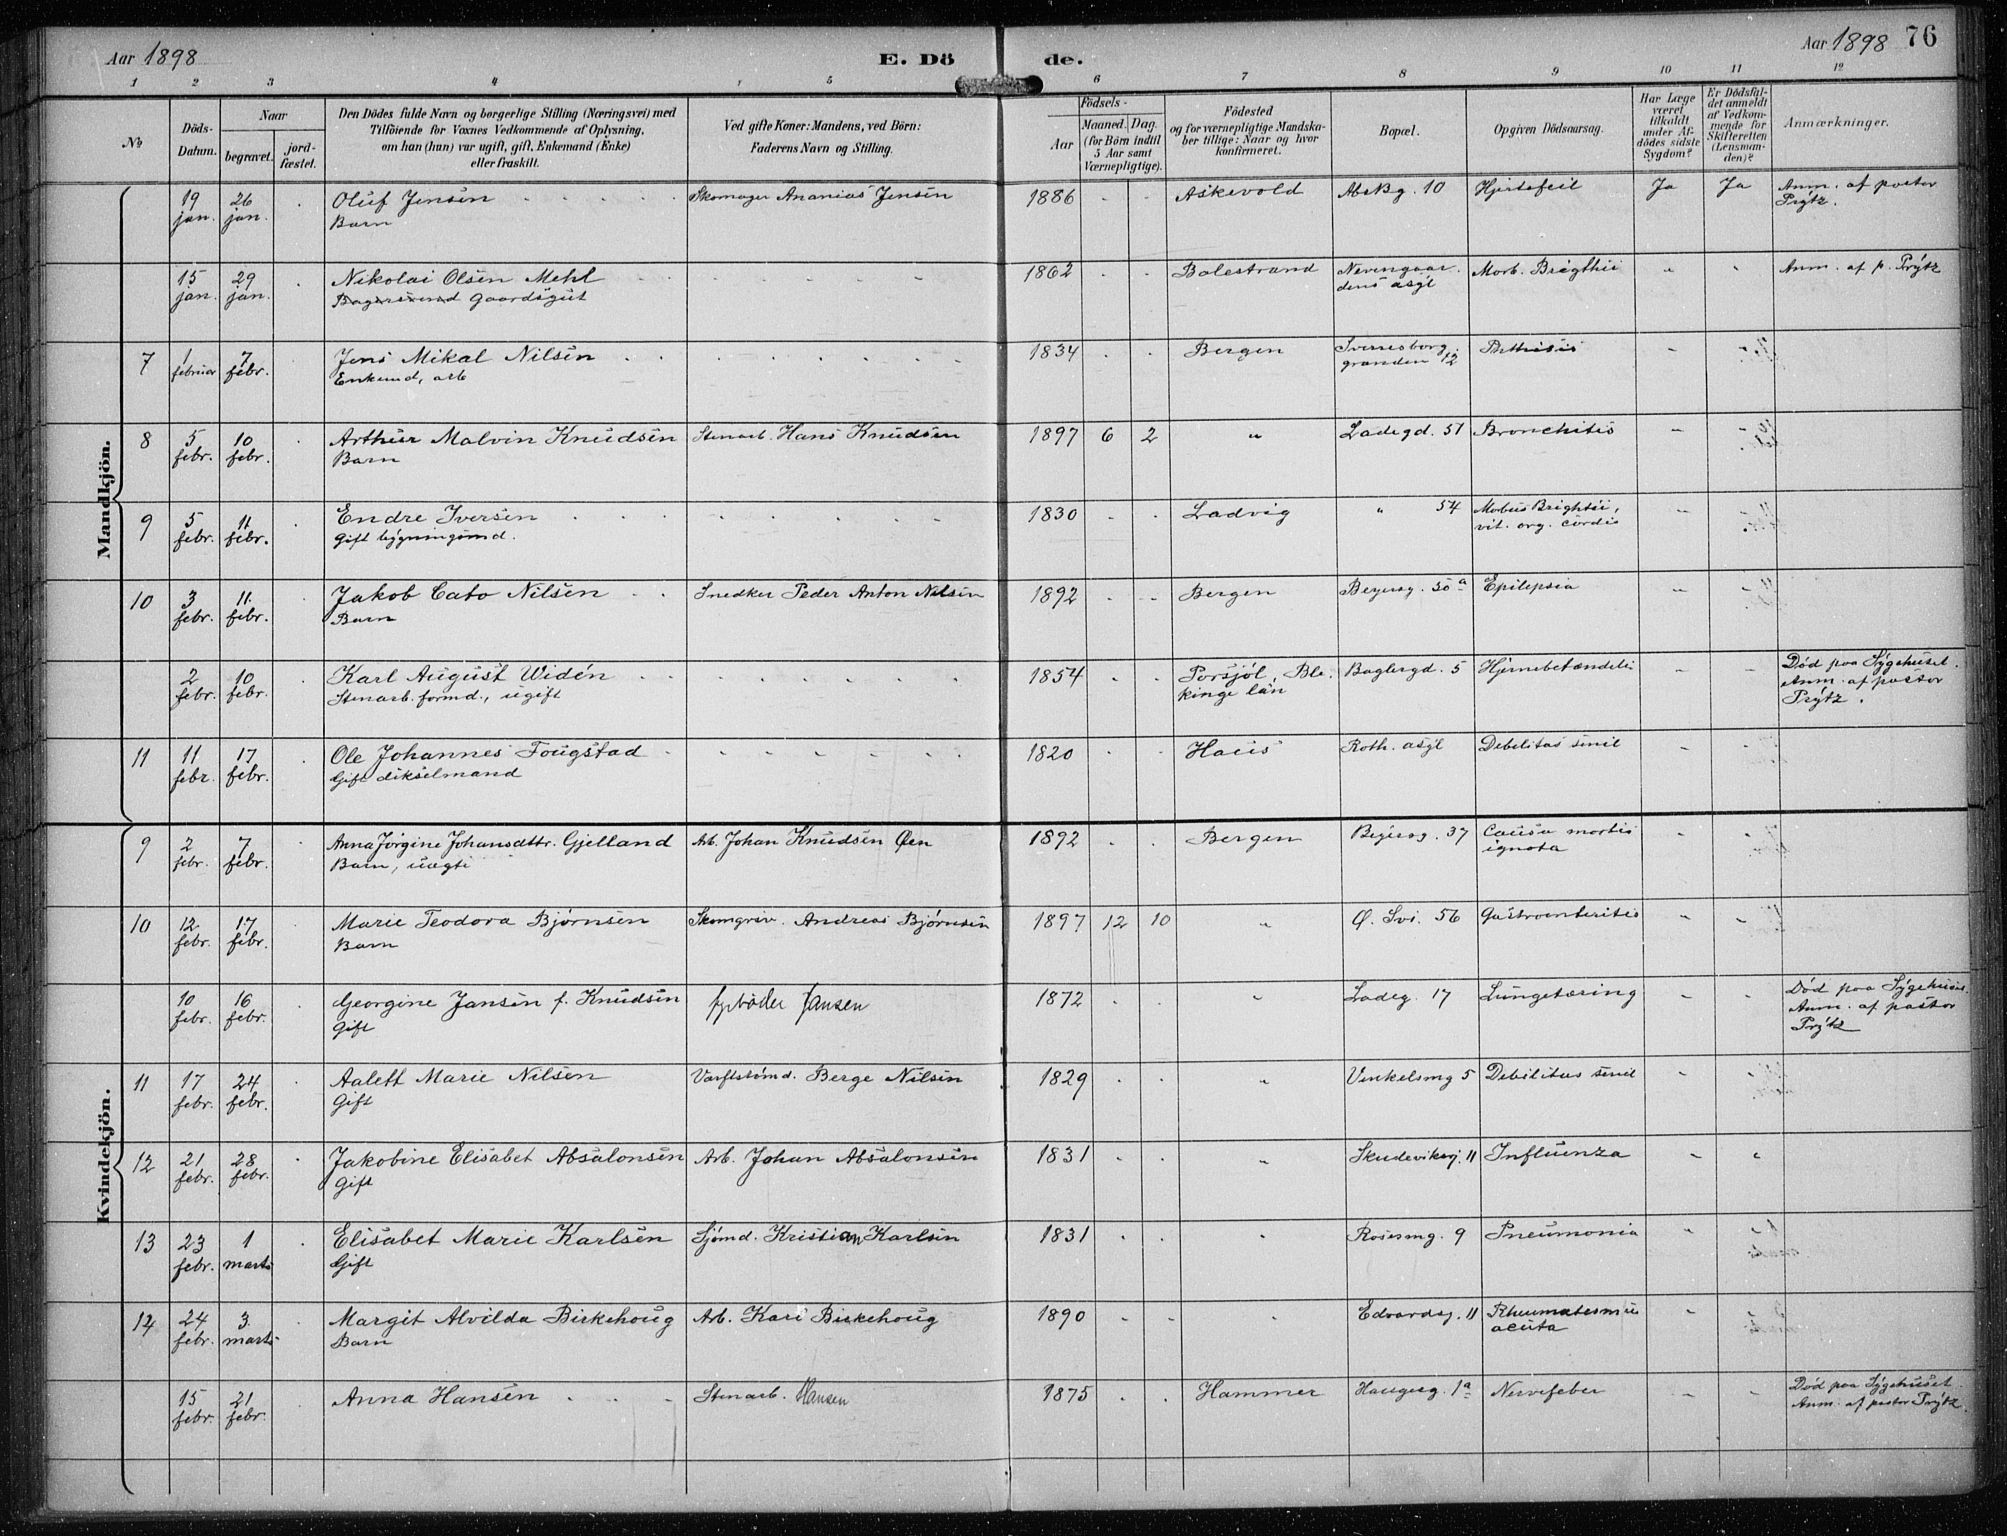 Aar 1898
E. Dö
de.
Aar 1898
76
1 2 3 4 5 6 7 8 9 10 11 12
No
Döds-
Datum.
Naar
begravet.
jord-
fæstet.
Den Dödes fulde Navn og borgerlige Stilling (Næringsvei) med
Tilföiende for Voxnes Vedkommende af Oplysning,
om han (hun) var ugift, gift, Enkemand (Enke)
eller fraskilt.
Ved gifte Koner: Mandens, ved Börn:
Faderens Navn og Stilling.
Födsels-
Aar
Maaned. Dag.
(for Börn indtil
5 Aar samt
Værnepligtige).
Födested
og for værnepligtige Mandska-
ber tillige: Naar og hvor
konfirmeret.
Bopæl.
Opgiven Dödsaarsag.
Har Læge
været
tilkaldt
under Af-
dödes sidste
Sygdom?
Er Dödsfal-
det anmeldt
af Vedkom-
mende for
Skifteretten
(Lensman-
den)?
Anmærkninger.
Mandkjön.
19 26 Oluf Jensen Skomager Ananias Jensen 1886 - - Askevold 10 Hjertefeil Ja Ja Anm. af pastor
jan. jan. Barn Prÿtz.
15 29 Nikolai Olsen Mehl 1862 - - Balestrand Nevengaar- Morb. Brigthii " " Anm. af p. Prÿtz
jan. jan. gaardsgut dens asÿl
7 1 7 Jens Mikal Nilsen 1834 - - Bergen Sverresborg.
februar febr. Enkemd, arb granden 12
8 5 10 Arthur Malvin Knudsen Stenarb. Hans Knudsen 1897 6 2 " Ladegd. 51 Bronchitis
febr. febr. Barn
9 5 11 Endre Iversen 1830 - - Ladvig " 54 Morbus Brightii,
febr. febr. Gift bÿgningsmd. vit. org. cordis
10 3 11 Jakob Cato Nilsen Snedker Peder Anton Nilsen 1892 - - Bergen Beyersg. 30a Epilepsia
febr. febr. Barn
2 10 Karl August Widén 1854 - - Ble- Baglergd. 5 Hjernebetændelse Død paa Sÿgehuset.
febr. febr. Stenarb. formd., ugift kinge län Anm. af pastor
Prÿtz.
11 11 17 Ole Johannes Fougstad 1820 - - Haus Roth. asÿl Debilitas senil
febr. febr. Gift dikselmand
Kvindekjön.
9 2 7 Anna Jørgine Johansdttr. Gjelland Arb. Johan Knudsen Øen 1892 - - Bergen Beyersg. 37 Causa mortis
febr. febr. Barn, uægte ignota
10 12 17 Marie Teodora Bjørnsen Andreas Bjørnsen 1897 12 10 " Ø. Svi. 56 Gastroenteritis
febr. febr. Barn
10 16 Georgine Jansen f. Knudsen fyrbøder Jansen 1872 - - " Ladeg. 17 Lungetæring Død paa Sÿgehuset.
febr. febr. Gift Anm. af pastor
Prÿtz
11 17 24 Aalett Marie Nilsen Værftstømd. Berge Nilsen 1829 - - " Vinkelsmg 5 Debilitas senil
febr. febr. Gift
12 21 28 Jakobine Elisabet Absalonsen Arb. Johan Absalonsen 1831 - - " Skudeviksg. 11 Influenza
febr. febr. Gift
13 23 1 Elisabet Marie Karlsen Sjømd. Kristian Karlsen 1831 - - " Rosesmg. 9 Pneumonia
febr. marts Gift
14 24 3 Margit Alvilda Birkehoug Arb. Karl Birkehoug 1890 - - " Edvardsg. 11 Rheumatesmus
febr. marts Barn acuta
15 21 Anna Hansen Stenarb. Hansen 1875 - - Hammer Haugesg. 1a Nervefeber Død paa Sÿgehuset.
febr. febr. Anm. af pastor Prÿtz.